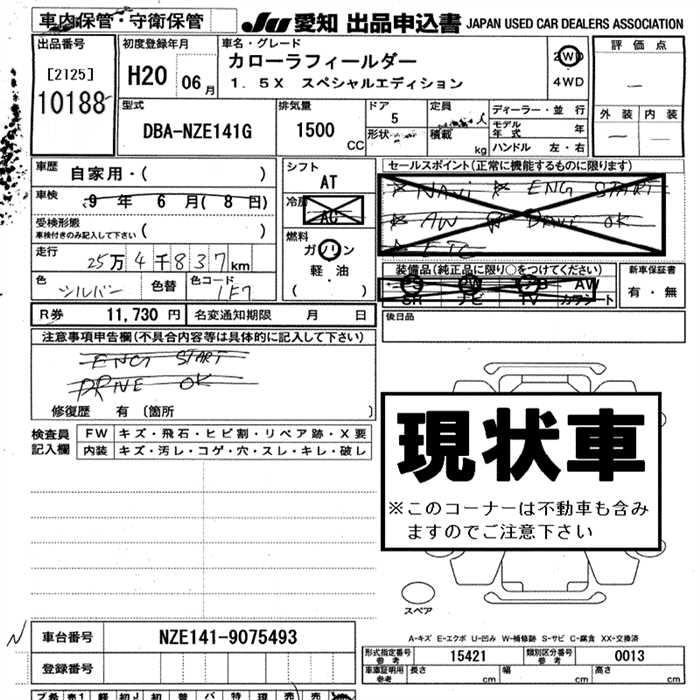 車内保管・守衛保管
JU 愛知 出品申込書 JAPAN USED CAR DEALERS ASSOCIATION
出品番号
[2125]
10188
初度登録年月
H20 06月
車名・グレード
カローラフィールダー
1.5X スペシャルエディション
2WD
4WD
評価点
外装 内装
型式
DBA-NZE141G
排気量
1500 CC
ドア
5
形状
定員
人
積載
kg
ディーラー・並行
モデル年式 年
ハンドル 左・右
車歴 自家用・( )
車検 9年 6月(8日)
受検形態
車検付きのみ記入して下さい ( )
走行 25万4千837km
色 シルバー 色替 色コード 1F7
シフト
AT
冷房
AC
燃料
ガソリン
軽・油
( )
セールスポイント(正常に機能するものに限ります)
NAVI ENG START
AW DRIVE OK
ETC
装備品(純正品に限り○をつけてください)
PS PW AB AW
SR ナビ TV カワシート
新車保証書
有・無
R券 11,730円 名変通知期限 月 日
後日品
注意事項申告欄(不具合内容等は具体的に記入して下さい)
ENG START
DRIVE OK
修復歴 有 〔箇所 〕
検査員記入欄
FW キズ・飛石・ヒビ割・リペア跡・X要
内装 キズ・汚レ・コゲ・穴・スレ・キレ・破レ
現状車
※このコーナーは不動車も含み
ますのでご注意下さい
スペア
A-キズ E-エクボ U-凹み W-補修跡 S-サビ C-腐食 XX-交換済
N
車台番号 NZE141-9075493
登録番号
形式指定番号 参考 15421 類別区分番号 参考 0013
車庫証明用 参考 長さ cm 幅 cm 高さ cm